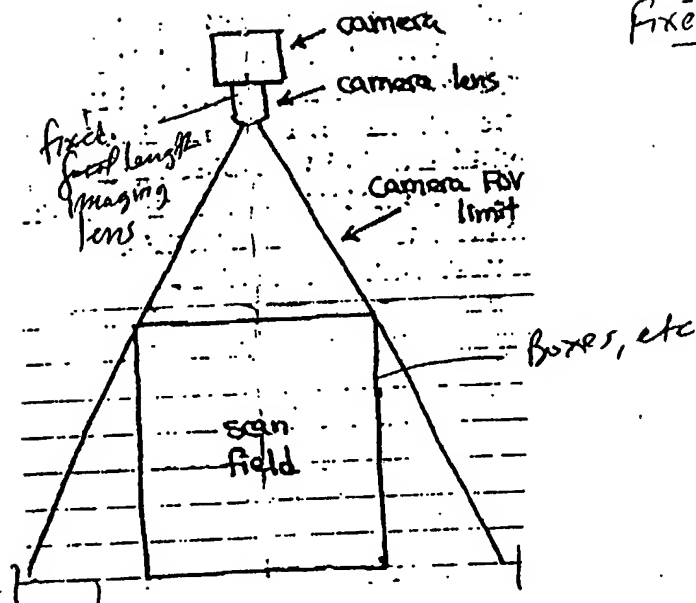 Fixe
camera
camera lens
fixed
focal length
imaging
lens
camera FOV
limit
Boxes, etc
scan
field